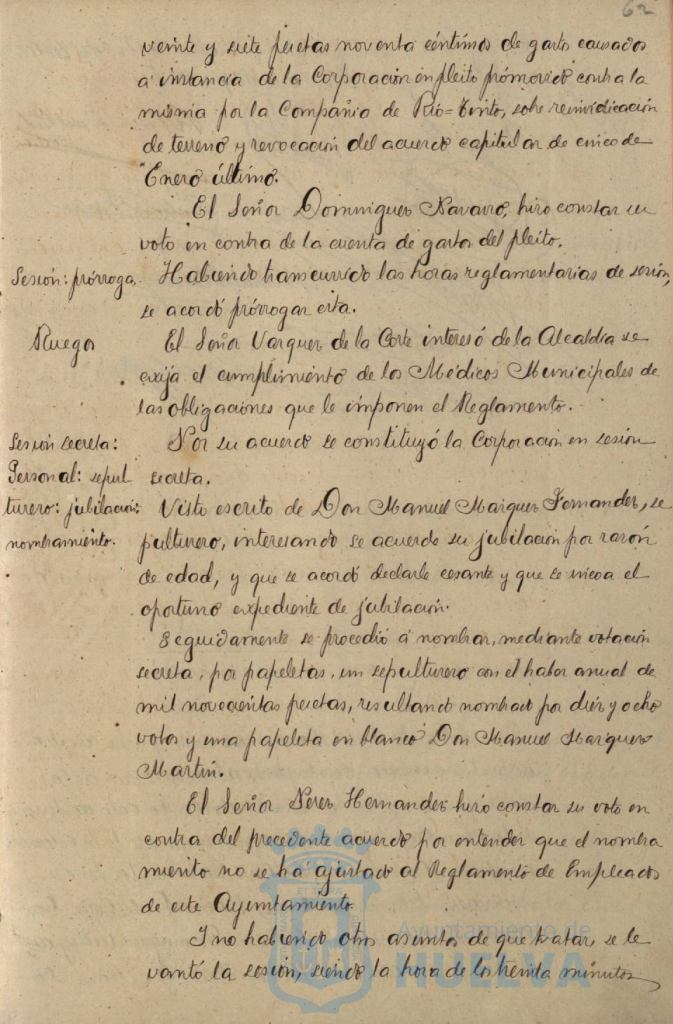 62
veinte y siete pesetas noventa céntimos de gastos causados
á instancia de la Corporación en pleito promovido contra la
misma por la Compañia de Rio=Tinto, sobre reinvidicación
de terreno y revocación del acuerdo capitular de cinco de
Enero último.
El Señor Dominguez Navarro, hizo constar su
voto en contra de la cuenta de gastos del pleito.
Sesión: prórroga.
Habiendo transcurrido las horas reglamentarias de sesión,
se acordó prórrogar esta.
Ruego
El Señor Vazquez de la Corte interesó de la Alcaldia se
exija el cumplimiento de los Médicos Municipales de
las obligaciones que le imponen el Reglamento.-
Sesión secreta:
Personal: sepul
turero: jubilación:
nombramiento.
Por su acuerdo se constituyó la Corporación en sesión
secreta.
Visto escrito de Don Manuel Marquez Fernandez, se
pulturero, interesando se acuerde su jubilación por razón
de edad, y que se acordó declarle cesante y que se incoa el
oportuno expediente de jubilación.
Seguidamente se procedió á nombrar, mediante votación
secreta, por papeletas, un sepulturero con el haber anual de
mil novecientas pesetas, resultando nombrado por diez y ocho
votos y una papeleta en blanco Don Manuel Marquez
Martin.
El Señor Perez Hernandez hizo constar su voto en
contra del precedente acuerdo por entender que el nombra
miento no se ha ajustado al Reglamento de Empleados
de este Ayuntamiento.
Y no habiendo otros asuntos de que tratar, se le
vantó la sesión, siendo la hora de los treinta minutos
Ayuntamiento de
HUELVA